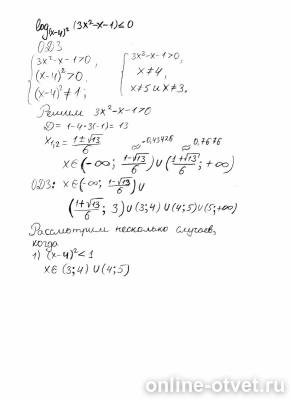 log₍ₓ₋₄₎² (3x²-x-1) ≤ 0
ОДЗ
{ 3x²-x-1>0, { 3x²-x-1>0,
(x-4)²>0, x≠4,
(x-4)²≠1; x≠5 и x≠3.
Решим 3x²-x-1>0
D=1-4·3(-1)=13
x₁,₂ = (1±√13)/6 ≈-0,43426 ≈0,7676
x∈(-∞; (1-√13)/6) ∪ ((1+√13)/6; +∞)
ОДЗ: x∈(-∞; (1-√13)/6) ∪
((1+√13)/6; 3) ∪ (3;4) ∪ (4;5) ∪ (5;+∞)
Рассмотрим несколько случаев,
когда
1) (x-4)²<1
x∈(3;4) ∪ (4;5)
online-otvet.ru